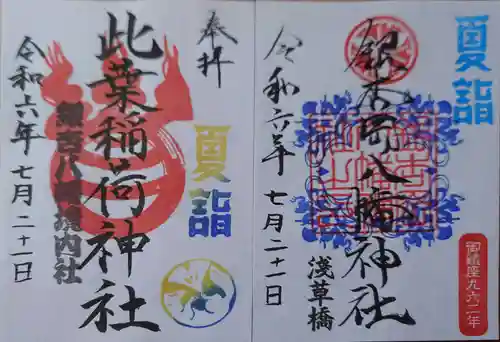 夏詣
銀杏岡八幡神社
浅草橋
令和六年 七月二十一日
御鎮座九六二年
奉拝
夏詣
此葉稲荷神社
八幡境内社
令和六年 七月二十一日